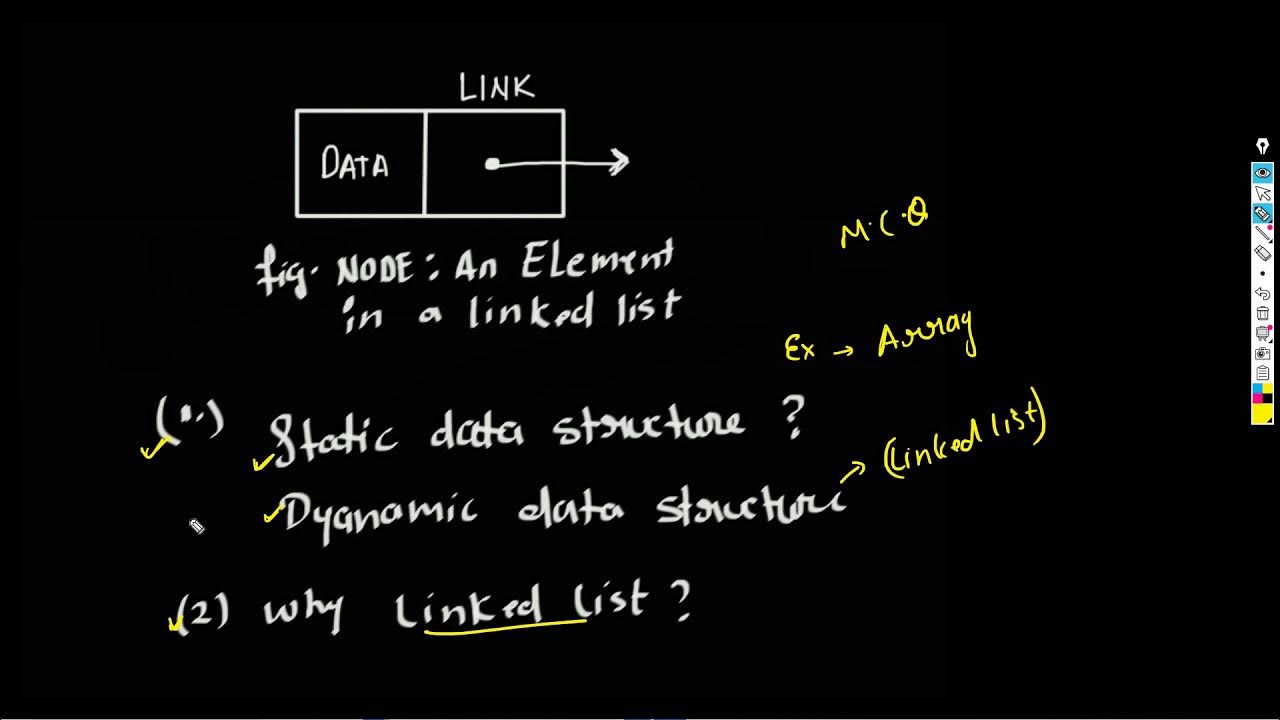 LINK
DATA
fig. NODE : An Element
in a linked list
M.C.Q
Ex → Array
(1.) Static data structure ?
Dyanamic data structure → (Linked list)
(2) why Linked list ?